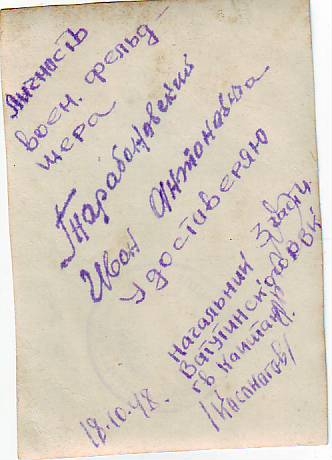 Личность
воен. фельд-
шера
Тарабановский
Иван Антонович
удостоверяю
Начальник
Ватутинского РВК
гв капитан
18.10.48.